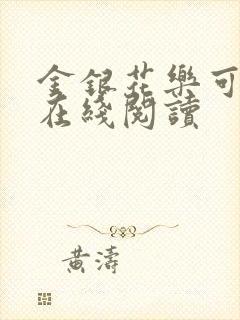 金銀花樂可
在綫閱讀
黃濤